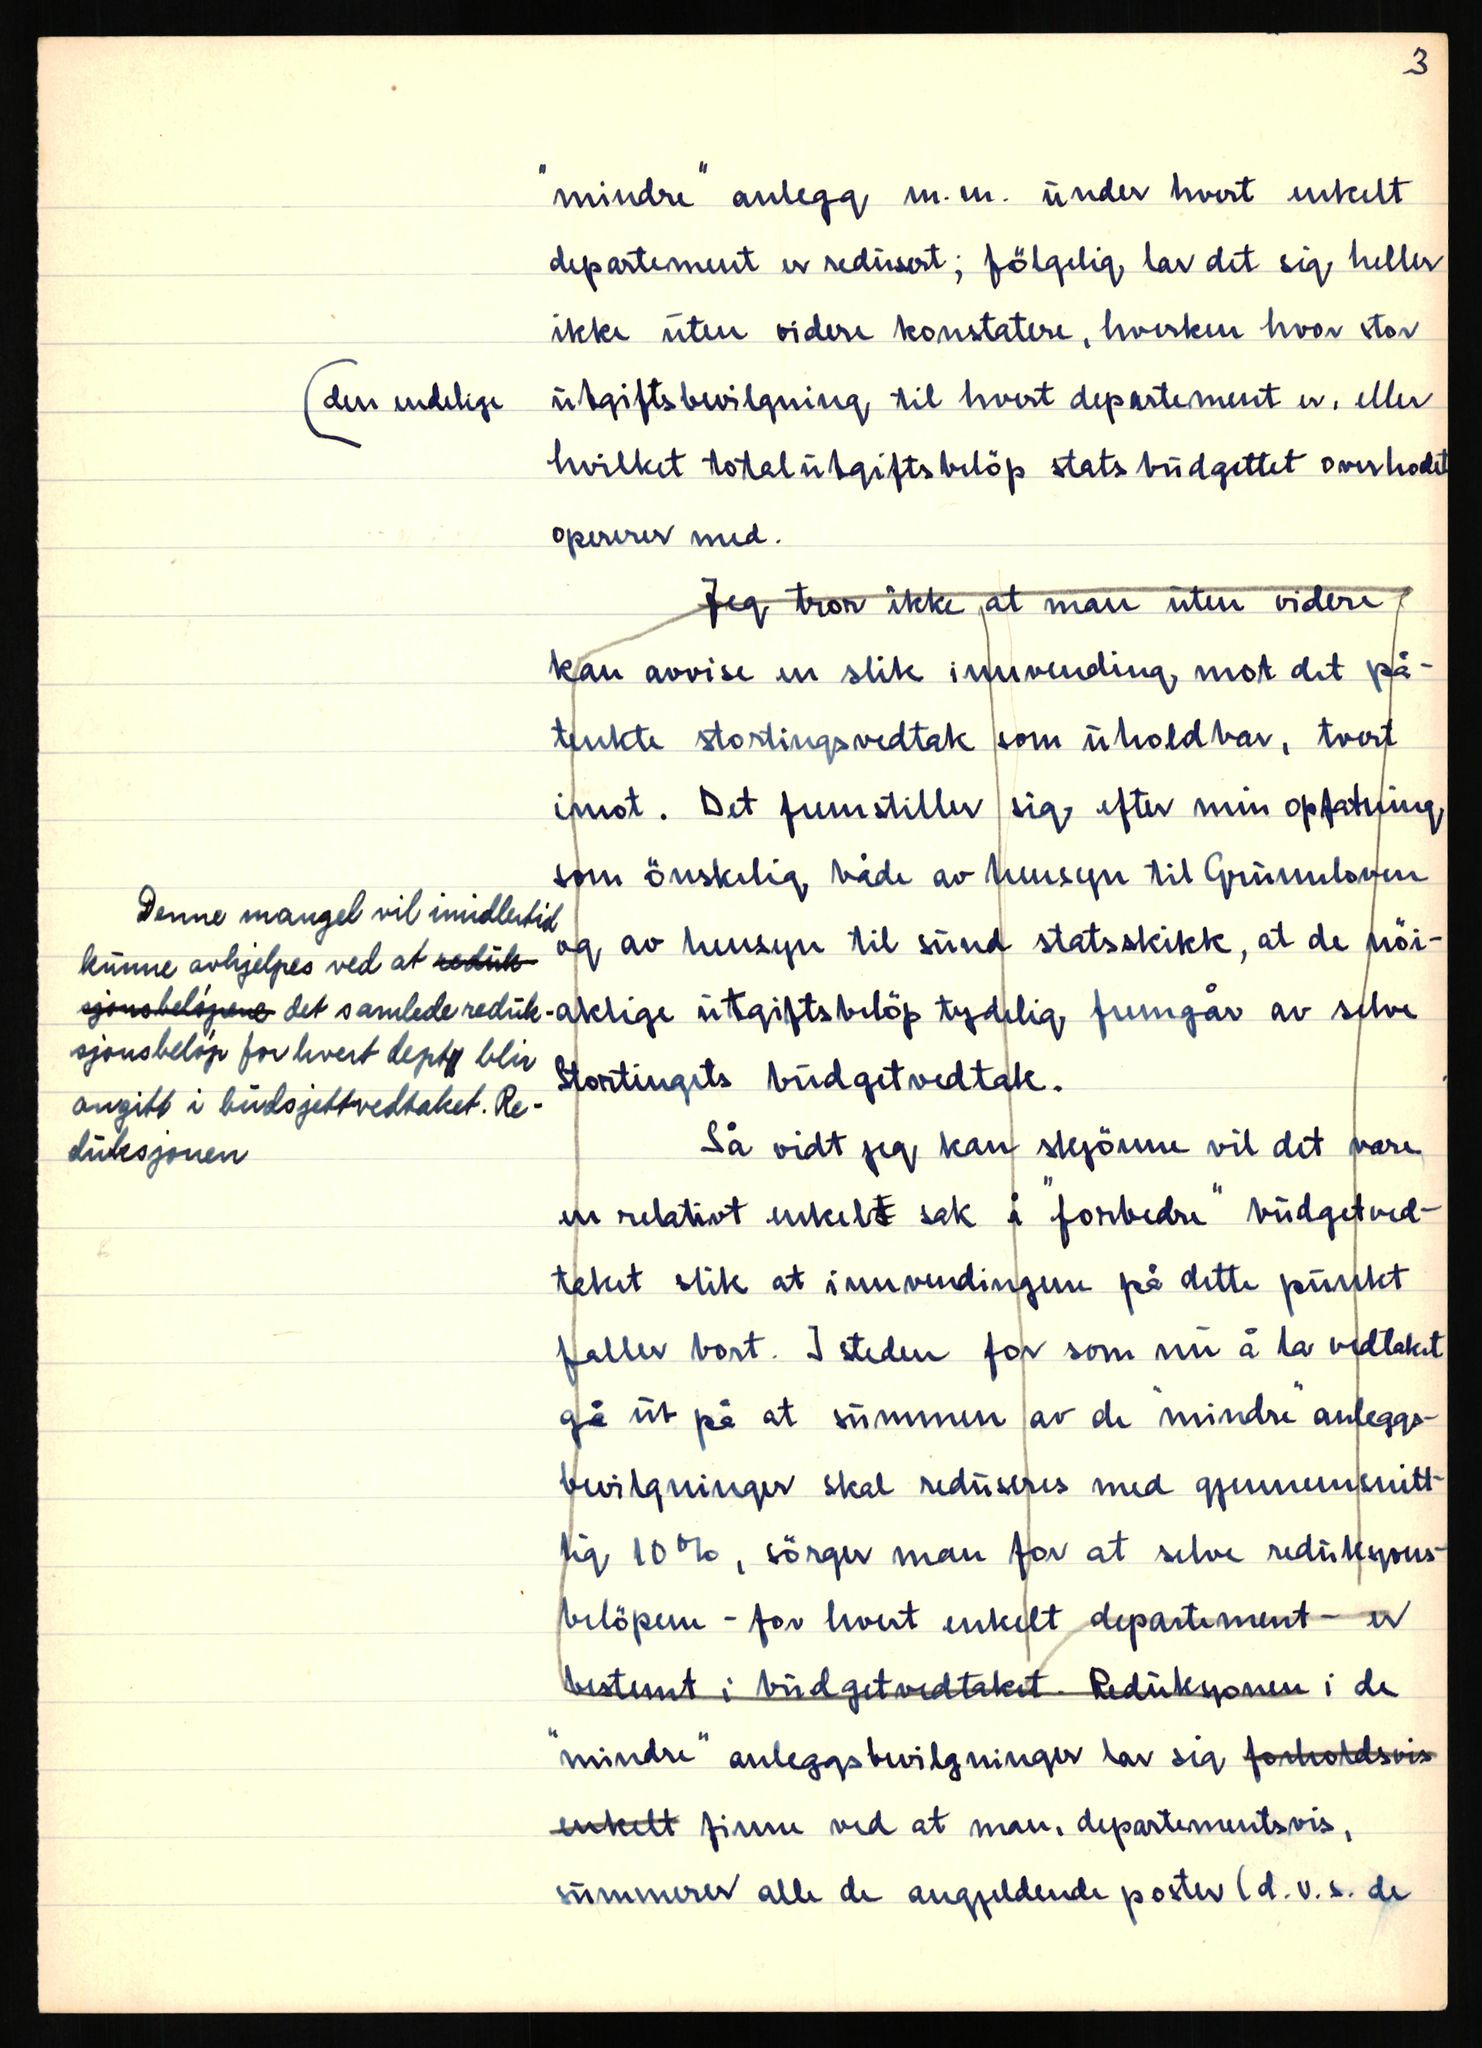 3
"mindre" anlegg m.m. under hvert enkelt
departement er redusert; fölgelig lar det sig heller
ikke uten videre konstatere, hverken hvor stor
(den endelige
utgiftsbevilgning til hvert departement er, eller
hvilket totalutgiftsbelöp statsbudgettet overhodet
opererer med.
Jeg tror ikke at man uten videre
kan avvise en slik innvending mot det på-
tenkte stortingsvedtak som uholdbar, tvert
imot. Det fremstiller sig efter min opfatning
som önskelig både av hensyn til Grunnloven
og av hensyn til sund statsskikk, at de nöi-
aktige utgiftsbelöp tydelig fremgår av selve
Stortingets budgetvedtak.
Denne mangel vil imidlertid
kunne avhjelpes ved at reduk-
sjonsbelöpene det samlede reduk-
sjonsbelöp for hvert dept. blir
angitt i budsjettvedtaket. Re-
duksjonen
Så vidt jeg kan skjönne vil det være
en relativt enkelt sak å "forbedre" budgetved-
taket slik at innvendingene på dette punkt
faller bort. I steden for som nu å la vedtaket
gå ut på at summen av de "mindre" anleggs-
bevilgninger skal reduseres med gjennemsnitt-
lig 10%, sörger man for at selve reduksjons-
belöpene - for hvert enkelt departement - er
bestemt i budgetvedtaket. Reduksjonen i de
"mindre" anleggsbevilgninger lar sig forholdsvis
enkelt finne ved at man, departementsvis,
summerer alle de angjeldende poster (d.v.s. de